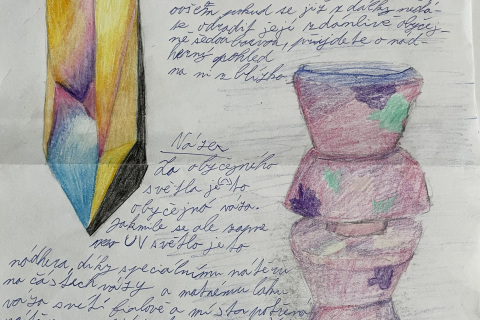 ovšem, pokud se již z dálky nedá-
te odradit její zdánlivě obyčej-
ně šedou barvou, přijdete o nád-
herný pohled
na ni z blízka
Váza
Za obyčejného
světla je to
obyčejná váza.
Jakmile se ale zapne
UV světlo je to
nádhera, díky speciálnímu nátěru
na částech vázy a matnému laku
váza svítí fialově a místa